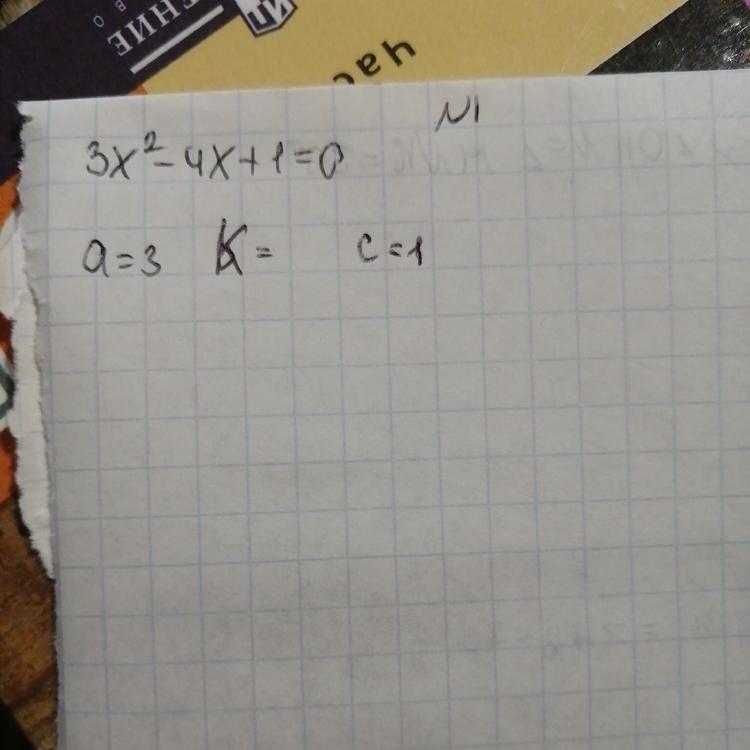 ЕНИЕ
ВО
час
№1
3x² - 4x + 1 = 0
a = 3 K = c = 1